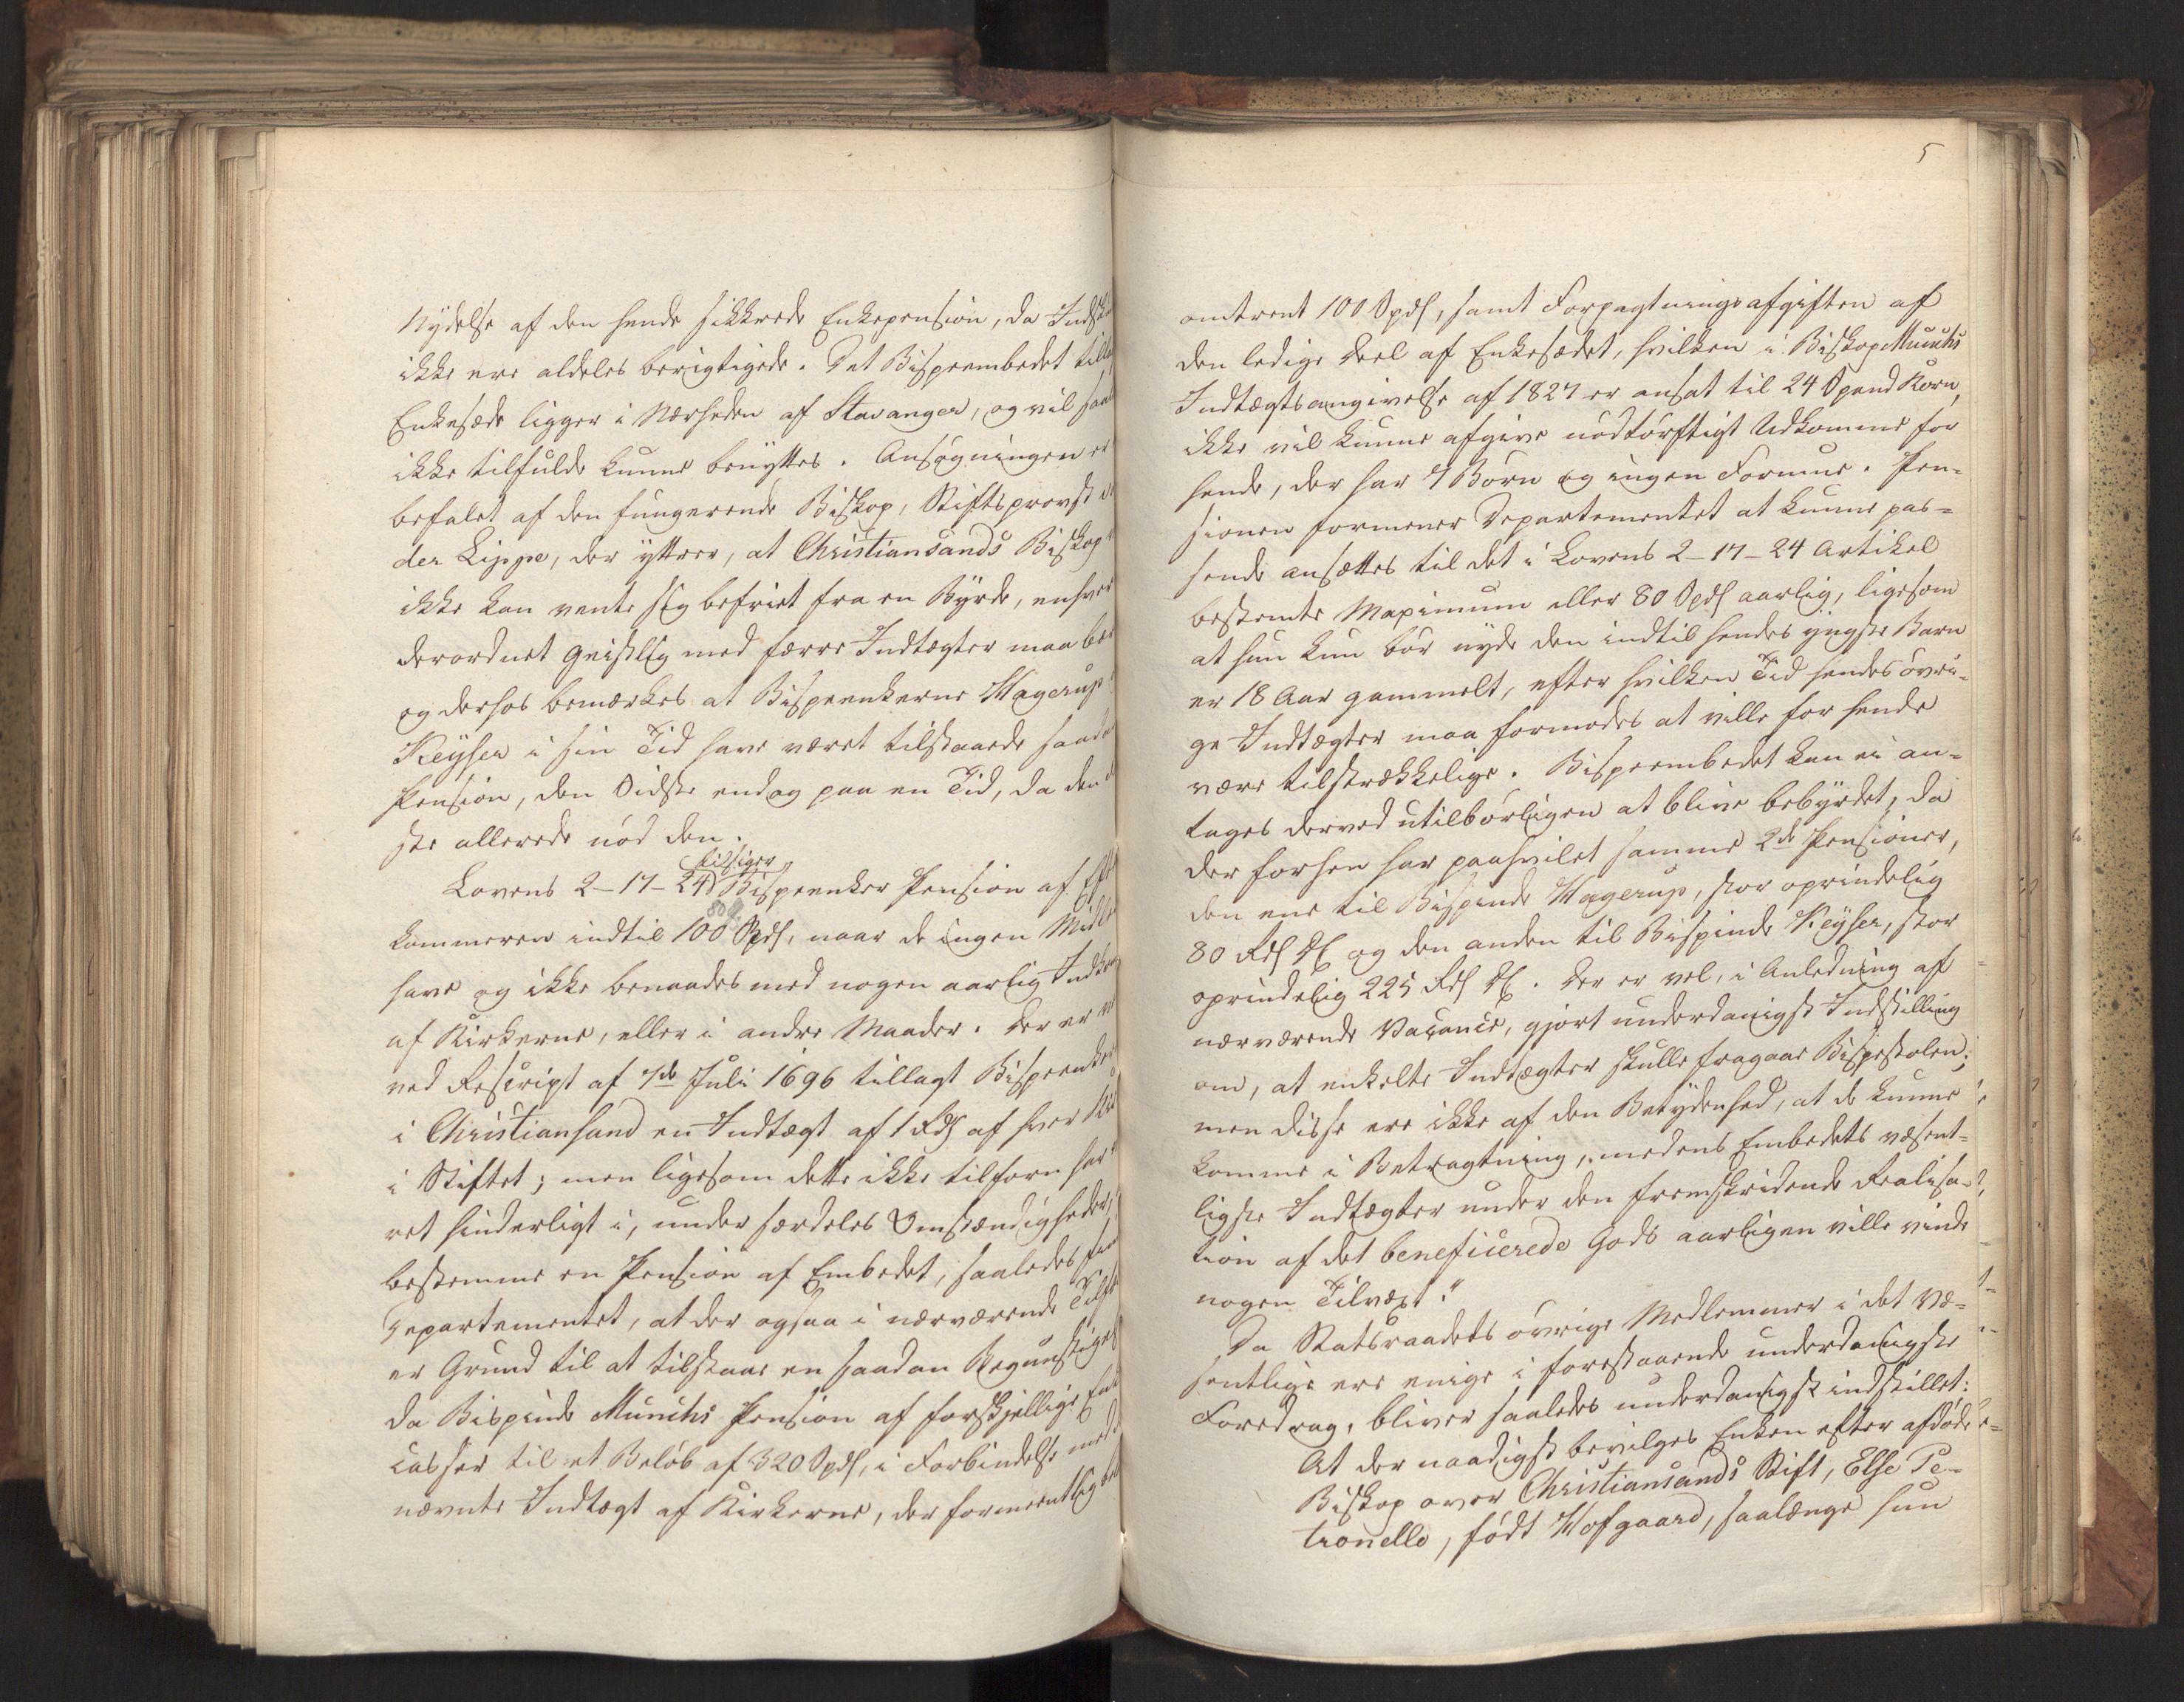 Nydelse af den hende sikkrede Enkepension, da Indsk
ikke ere aldeles berigtigede. Det Bispeembedet tilla
Enkesæde ligger i Nærheden af Stavanger, og vil saal
ikke tilfulde kunne benyttes. Ansøgningen er
befalet af den fungerende Biskop, Stiftsprovst v
der Lippe, der yttrer, at Christiansands Biskop
ikke kan vente sig befriet fra en Byrde, enhver
derordnet Geistlig med færre Indtægter maa bær
og derhos bemærkes at Bispeenkerne Hagerup
Keyser i sin Tid have været tilstaaede saada
Pension, den Sidste endog paa en Tid, da den
ste allerede nød den.
Lovens 2-17-24 tilsiger Bispeenker Pension af Efter
kommeren indtil 100 Rdl, naar de ingen Midle
have og ikke benaades med nogen aarlig Indkom
af Kirkerne, eller i andre Maader. Der er v
ved Rescript af 7de Juli 1696 tillagt Bispeenke
i Christiansand en Indtægt af 1 Rdl af hver Kir
i Stiftet; men ligesom dette ikke tilforn har
ret hinderligt i, under særdeles Omstændigheder
bestemme en Pension af Embedet, saaledes fin
Departementet, at der ogsaa i nærværende Tilfæ
er Grund til at tilstaae en saadan Begunstigel
da Bispinde Munchs Pension af forskjellige Enk
casser til et Beløb af 320 Spdl, i Forbindelse med
nævnte Indtægt af Kirkerne, der formeentlig bel
5
omtrent 100 Spdl, samt Forpagtningsafgiften af
den ledige Deel af Enkesædet, hvilken i Biskop Munchs
Indtægtsangivelse af 1827 er ansat til 24 Spand Korn,
ikke vil kunne afgive nødtørftigt Udkomme for
hende, der har 7 Børn og ingen Formue. Pen-
sionen formener Departementet at kunne pas-
sende ansættes til det i Lovens 2-17-24 Artikel
bestemte Maximum eller 80 Spdl aarlig, ligesom
at hun kun bør nyde den indtil hendes yngste Barn
er 18 Aar gammelt, efter hvilken Tid hendes øvri-
ge Indtægter maa formodes at ville for hende
være tilstrækkelige. Bispeembedet kan ei an-
tages derved utilbørligen at blive bebyrdet, da
der forhen har paahvilet samme 2de Pensioner,
den ene til Bispinde Hagerup, stor oprindelig
80 Rdl DC og den anden til Bispinde Keyser, stor
oprindelig 225 Rdl DC. Der er vel, i Anledning af
nærværende Vacance, gjort underdanigst Indstilling
om, at enkelte Indtægter skulle fragaae Bispestolen;
men disse ere ikke af den Betydenhed, at de kunne
komme i Betragtning, medens Embedets væsent-
ligste Indtægter under den fremskridende Realisa-
tion af det beneficerede Gods aarligen ville vinde
nogen Tilvæxt."
Da Statsraadets øvrige Medlemmer i det Væ-
sentlige ere enige i forestaaende underdanigste
Foredrag, bliver saaledes underdanigst indstillet:
At der naadigst bevilges Enken efter afdøde
Biskop over Christiansands Stift, Else Pe-
tronelle, født Hofgaard, saalænge hun